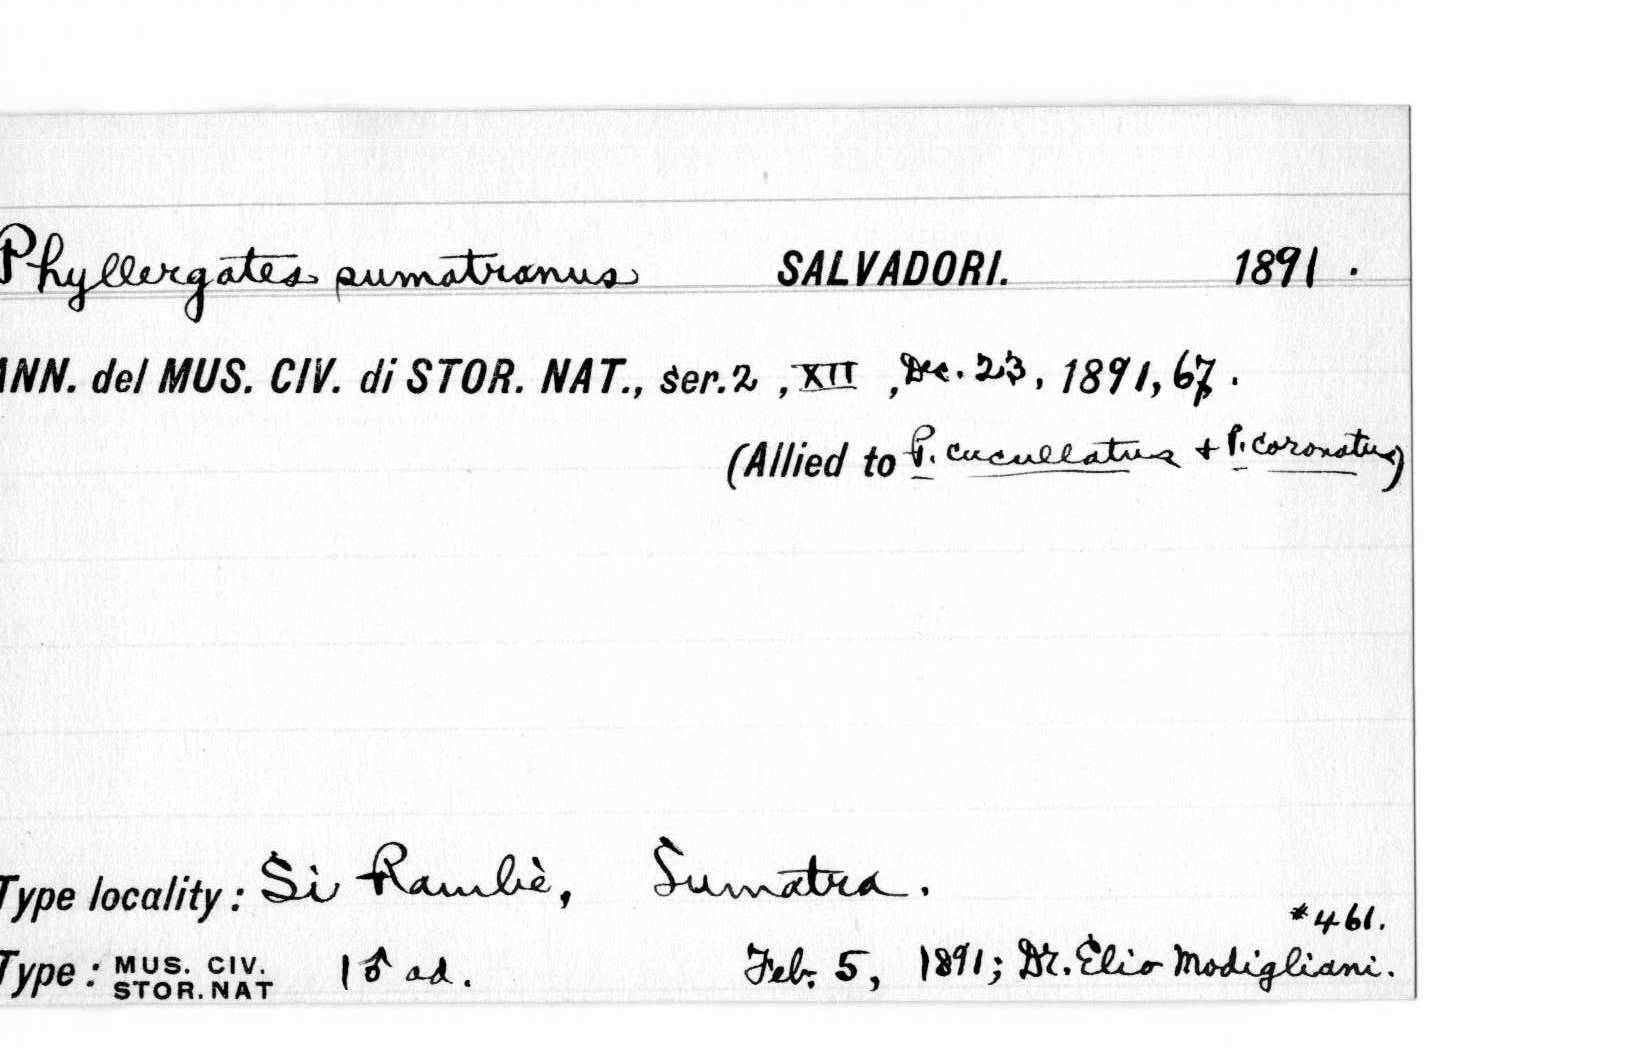 Phyllergates sumatranus SALVADORI. 1891.
ANN. del MUS. CIV. di STOR. NAT., ser. 2, XII, Dec. 23, 1891, 67.
(Allied to P. cucullatus + P. coronatus)
Type locality: Si Rambè, Sumatra.
#461.
Type: MUS. CIV. STOR. NAT 1 ♂ ad. Feb. 5, 1891; Dr. Elio Modigliani.